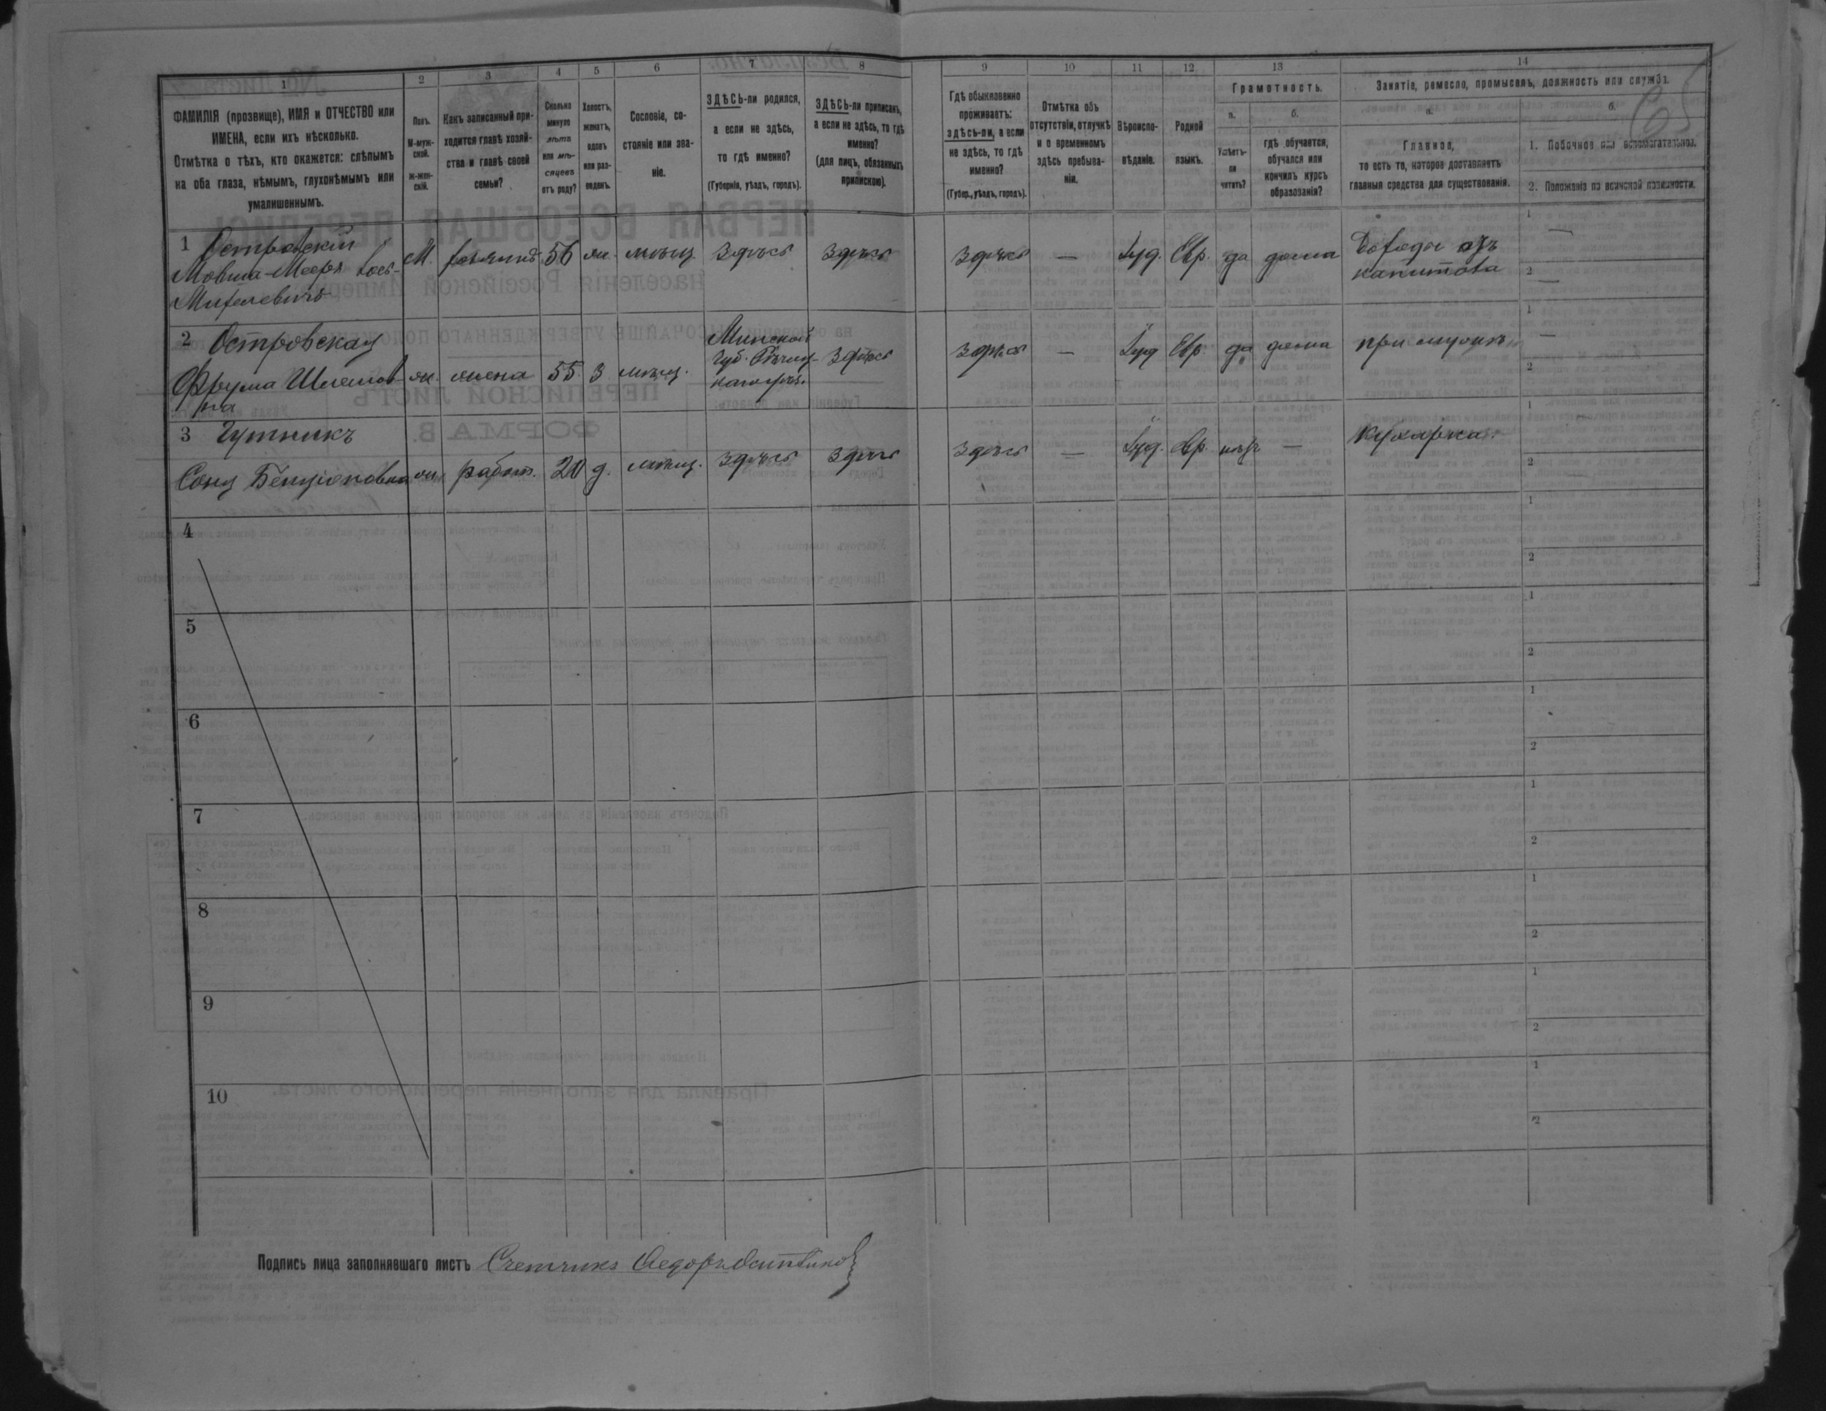 1 2 3 4 5 6 7 8 9 10 11 12 13 14
ФАМИЛІЯ (прозвище), ИМЯ и ОТЧЕСТВО или
ИМЕНА, если ихъ нѣсколько.
Отмѣтка о тѣхъ, кто окажется: слѣпымъ
на оба глаза, нѣмымъ, глухонѣмымъ или
умалишеннымъ.
Полъ.
М-муж-
ской.
ж-жен-
скій.
Какъ записанный при-
ходится главѣ хозяй-
ства и главѣ своей
семьи?
Сколько
минуло
лѣтъ
или мѣ-
сяцевъ
отъ роду?
Холостъ,
женатъ,
вдовъ
или раз-
веденъ.
Сословіе, со-
стояніе или зва-
ніе.
ЗДѢСЬ-ли родился,
а если не здѣсь,
то гдѣ именно?
(Губернія, уѣздъ, городъ).
ЗДѢСЬ-ли приписанъ,
а если не здѣсь, то гдѣ
именно?
(для лицъ, обязанныхъ
припискою).
Гдѣ обыкновенно
проживаетъ:
здѣсь-ли, а если
не здѣсь, то гдѣ
именно?
(Губер., уѣздъ, городъ).
Отмѣтка объ
отсутствіи, отлучкѣ
и о временномъ
здѣсь пребыва-
ніи.
Вѣроиспо-
вѣданіе.
Родной
языкъ.
Грамотность.
а.
Умѣетъ-
ли
читать?
б.
гдѣ обучается,
обучался или
кончилъ курсъ
образованія?
Занятіе, ремесло, промыселъ, должность или служба.
а.
Главное,
то есть то, которое доставляетъ
главныя средства для существованія.
б.
1. Побочное или вспомогательное.
2. Положеніе по воинской повинности.
1 Островскій
Мовша-Мееръ
М. 56 ж. мѣщ. здѣсь здѣсь здѣсь — Іуд. Евр. да дома
капитала
1 —
2 —
2 Островская
Фрума
на
ж. жена 55 з мѣщ.
Минской
губ.
здѣсь здѣсь — Іуд. Евр. да дома при мужѣ
1 —
2
3 Гутникъ
Соня Бенціоновна ж. работ. 20 д. мѣщ. здѣсь здѣсь здѣсь — Іуд. Евр. нѣтъ — Кухарка
1
2
4 1
2
5 1
2
6 1
2
7 1
2
8 1
2
9 1
2
10 1
2
Подпись лица заполнявшаго листъ Счетчикъ Ѳедоръ